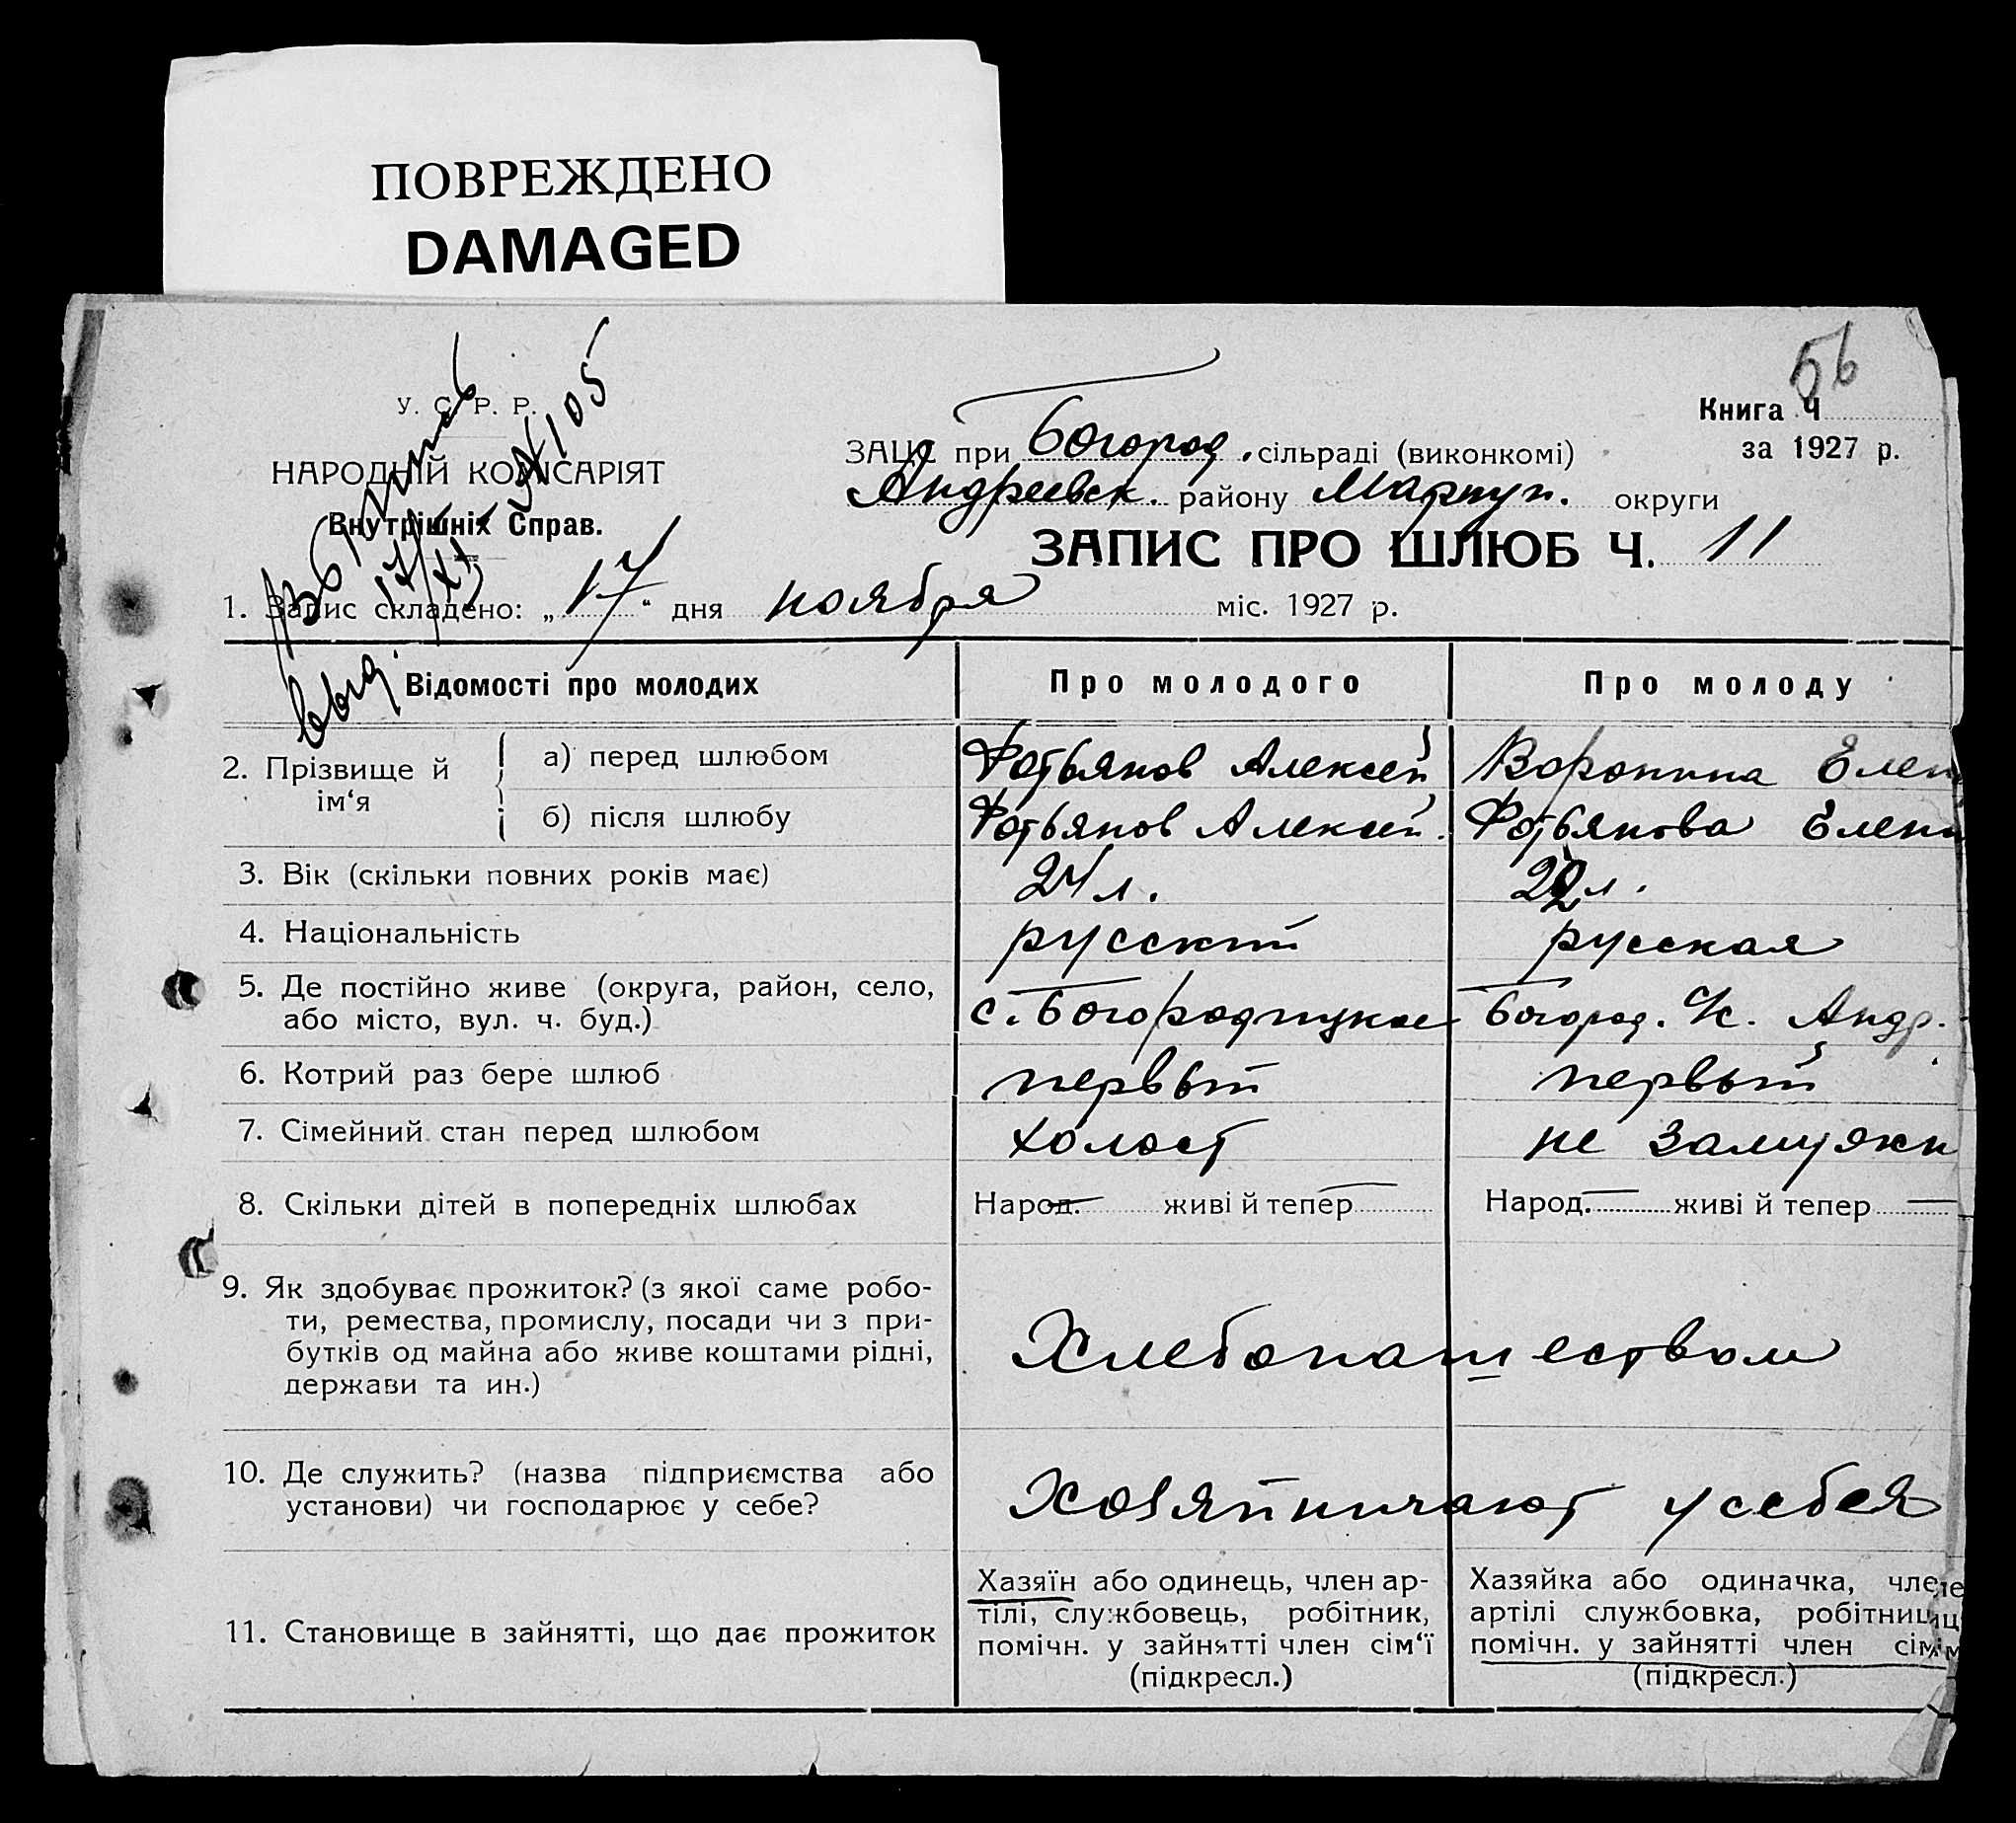 ПОВРЕЖДЕНО
DAMAGED
56
У. С. Р. Р.
НАРОДНІЙ КОМІСАРІЯТ
Внутрішніх Справ.
Выд. 17/XI № 105
Книга Ч
за 1927 р.
ЗАЦС при Богород. сільраді (виконкомі)
Андреевск. району Мариуп. округи
ЗАПИС ПРО ШЛЮБ Ч. 11
1. Запис складено: „17“ дня ноября міс. 1927 р.
Відомості про молодих Про молодого Про молоду
2. Прізвище й ім‘я
а) перед шлюбом Фотьянов Алексей Воронина Елен
б) після шлюбу Фотьянов Алексей. Фотьянова Елен
3. Вік (скільки повних років має) 24 л. 22 л.
4. Національність русский русская
5. Де постійно живе (округа, район, село,
або місто, вул. ч. буд.) с. Богородицкое Богород. Андр.
6. Котрий раз бере шлюб первый первый
7. Сімейний стан перед шлюбом холост не замужн
8. Скільки дітей в попередніх шлюбах Народ. — живі й тепер — Народ. — живі й тепер —
9. Як здобуває прожиток? (з якої саме робо-
ти, ремества, промислу, посади чи з при-
бутків од майна або живе коштами рідні,
держави та ин.)
Хлебопашеством
10. Де служить? (назва підприємства або
установи) чи господарює у себе?
Хозяйничают у себя
11. Становище в зайнятті, що дає прожиток
Хазяїн або одинець, член ар-
тілі, службовець, робітник,
помічн. у зайнятті член сім‘ї
(підкресл.)
Хазяйка або одиначка, чле
артілі службовка, робітниц
помічн. у зайнятті член сім
(підкресл.)